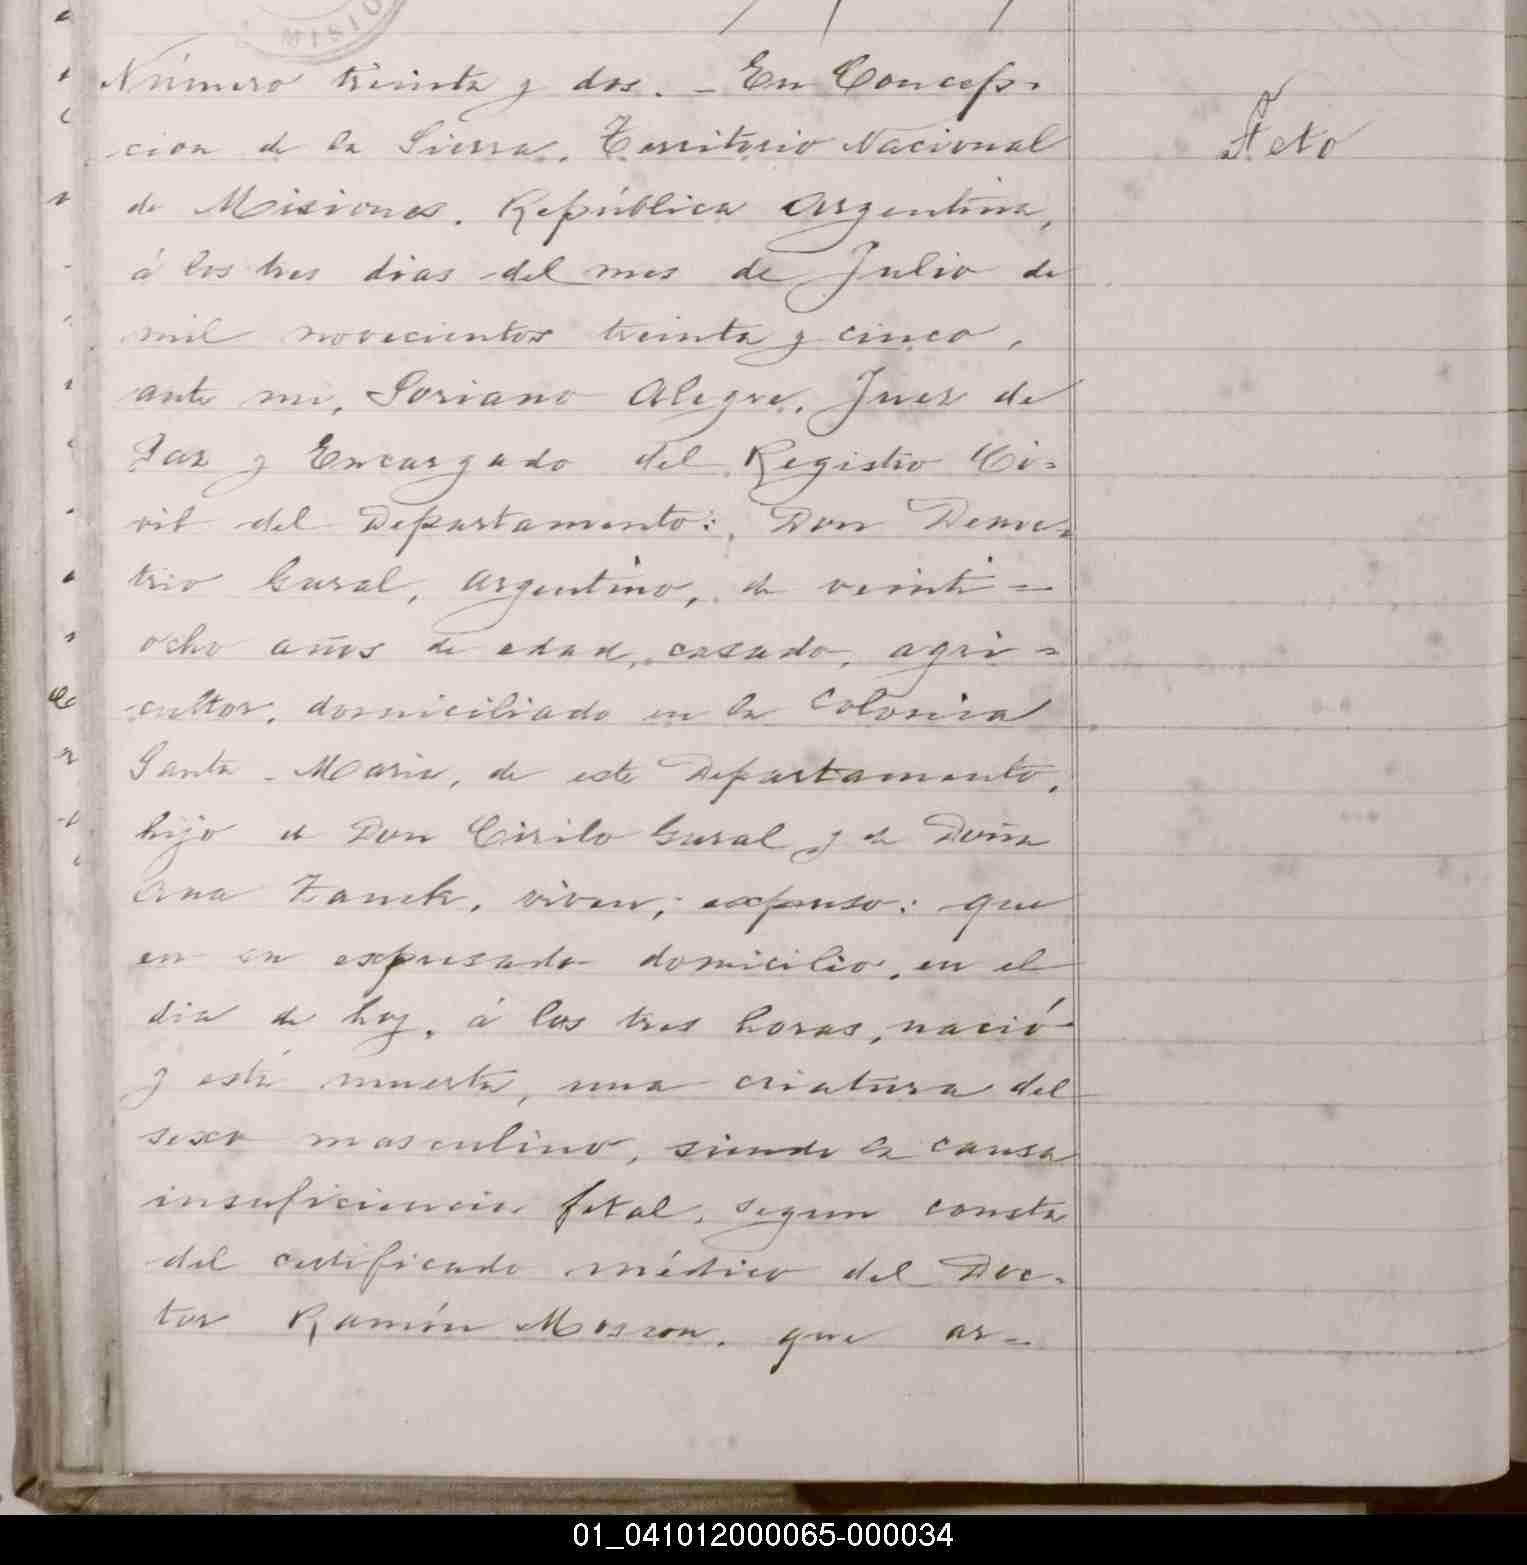 MISIO
Número treinta y dos. - En Concep-
cion de la Sierra, Territorio Nacional
de Misiones, República Argentina,
á los tres dias del mes de Julio de
mil novecientos treinta y cinco,
ante mi, Soriano Alegre, Juez de
Paz y Encargado del Registro Ci-
vil del Departamento:, Don Deme-
trio Gural, argentino, de veinti-
ocho años de edad, casado, agri-
cultor, domiciliado en la Colonia
Santa Maria, de este Departamento,
hijo de Don Cirilo Gural y de Doña
Ana, viven; expuso: que
en su expresado domicilio, en el
dia de hoy, á las tres horas, nació
y está muerta, una criatura del
sexo masculino, siendo la causa
insuficiencia fetal, segun consta
del certificado médico del Doc-
tor Ramón, que ar-
Feto
01_041012000065-000034